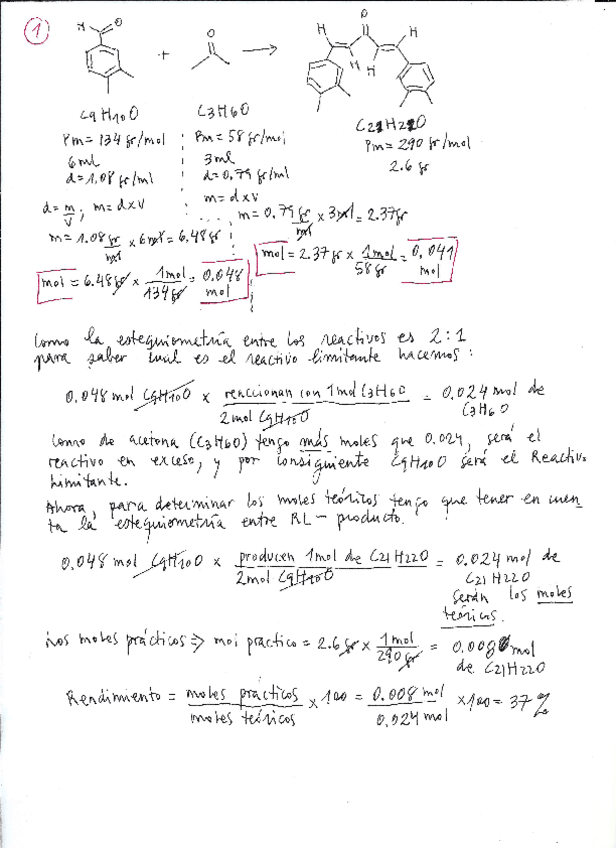 1
H O O O H H
+
H H
C9H10O C3H6O C21H22O
Pm = 134 gr/mol Pm = 58 gr/mol Pm = 290 gr/mol
6ml 3ml 2.6 gr
d = 1.08 gr/ml d = 0.79 gr/ml
d = m/V ; m = d x V m = d x V
m = 0.79 gr/ml x 3ml = 2.37gr
m = 1.08 gr/ml x 6ml = 6.48gr
mol = 2.37gr x 1mol/58gr = 0.041 mol
mol = 6.48gr x 1mol/134gr = 0.048 mol
Como la estequiometría entre los reactivos es 2:1
para saber cual es el reactivo limitante hacemos:
0.048 mol C9H10O x reaccionan con 1mol C3H6O / 2mol C9H10O = 0.024 mol de C3H6O
Como de acetona (C3H6O) tengo más moles que 0.024, será el
reactivo en exceso, y por consiguiente C9H10O será el Reactivo
Limitante.
Ahora, para determinar los moles teóricos tengo que tener en cuen
ta la estequiometría entre RL - producto.
0.048 mol C9H10O x producen 1mol de C21H22O / 2mol C9H10O = 0.024 mol de
C21H22O
serán los moles
teóricos.
Los moles prácticos => mol práctico = 2.6gr x 1mol/290gr = 0.008 mol
de C21H22O
Rendimiento = moles prácticos / moles teóricos x 100 = 0.008 mol / 0.024 mol x 100 = 37 %